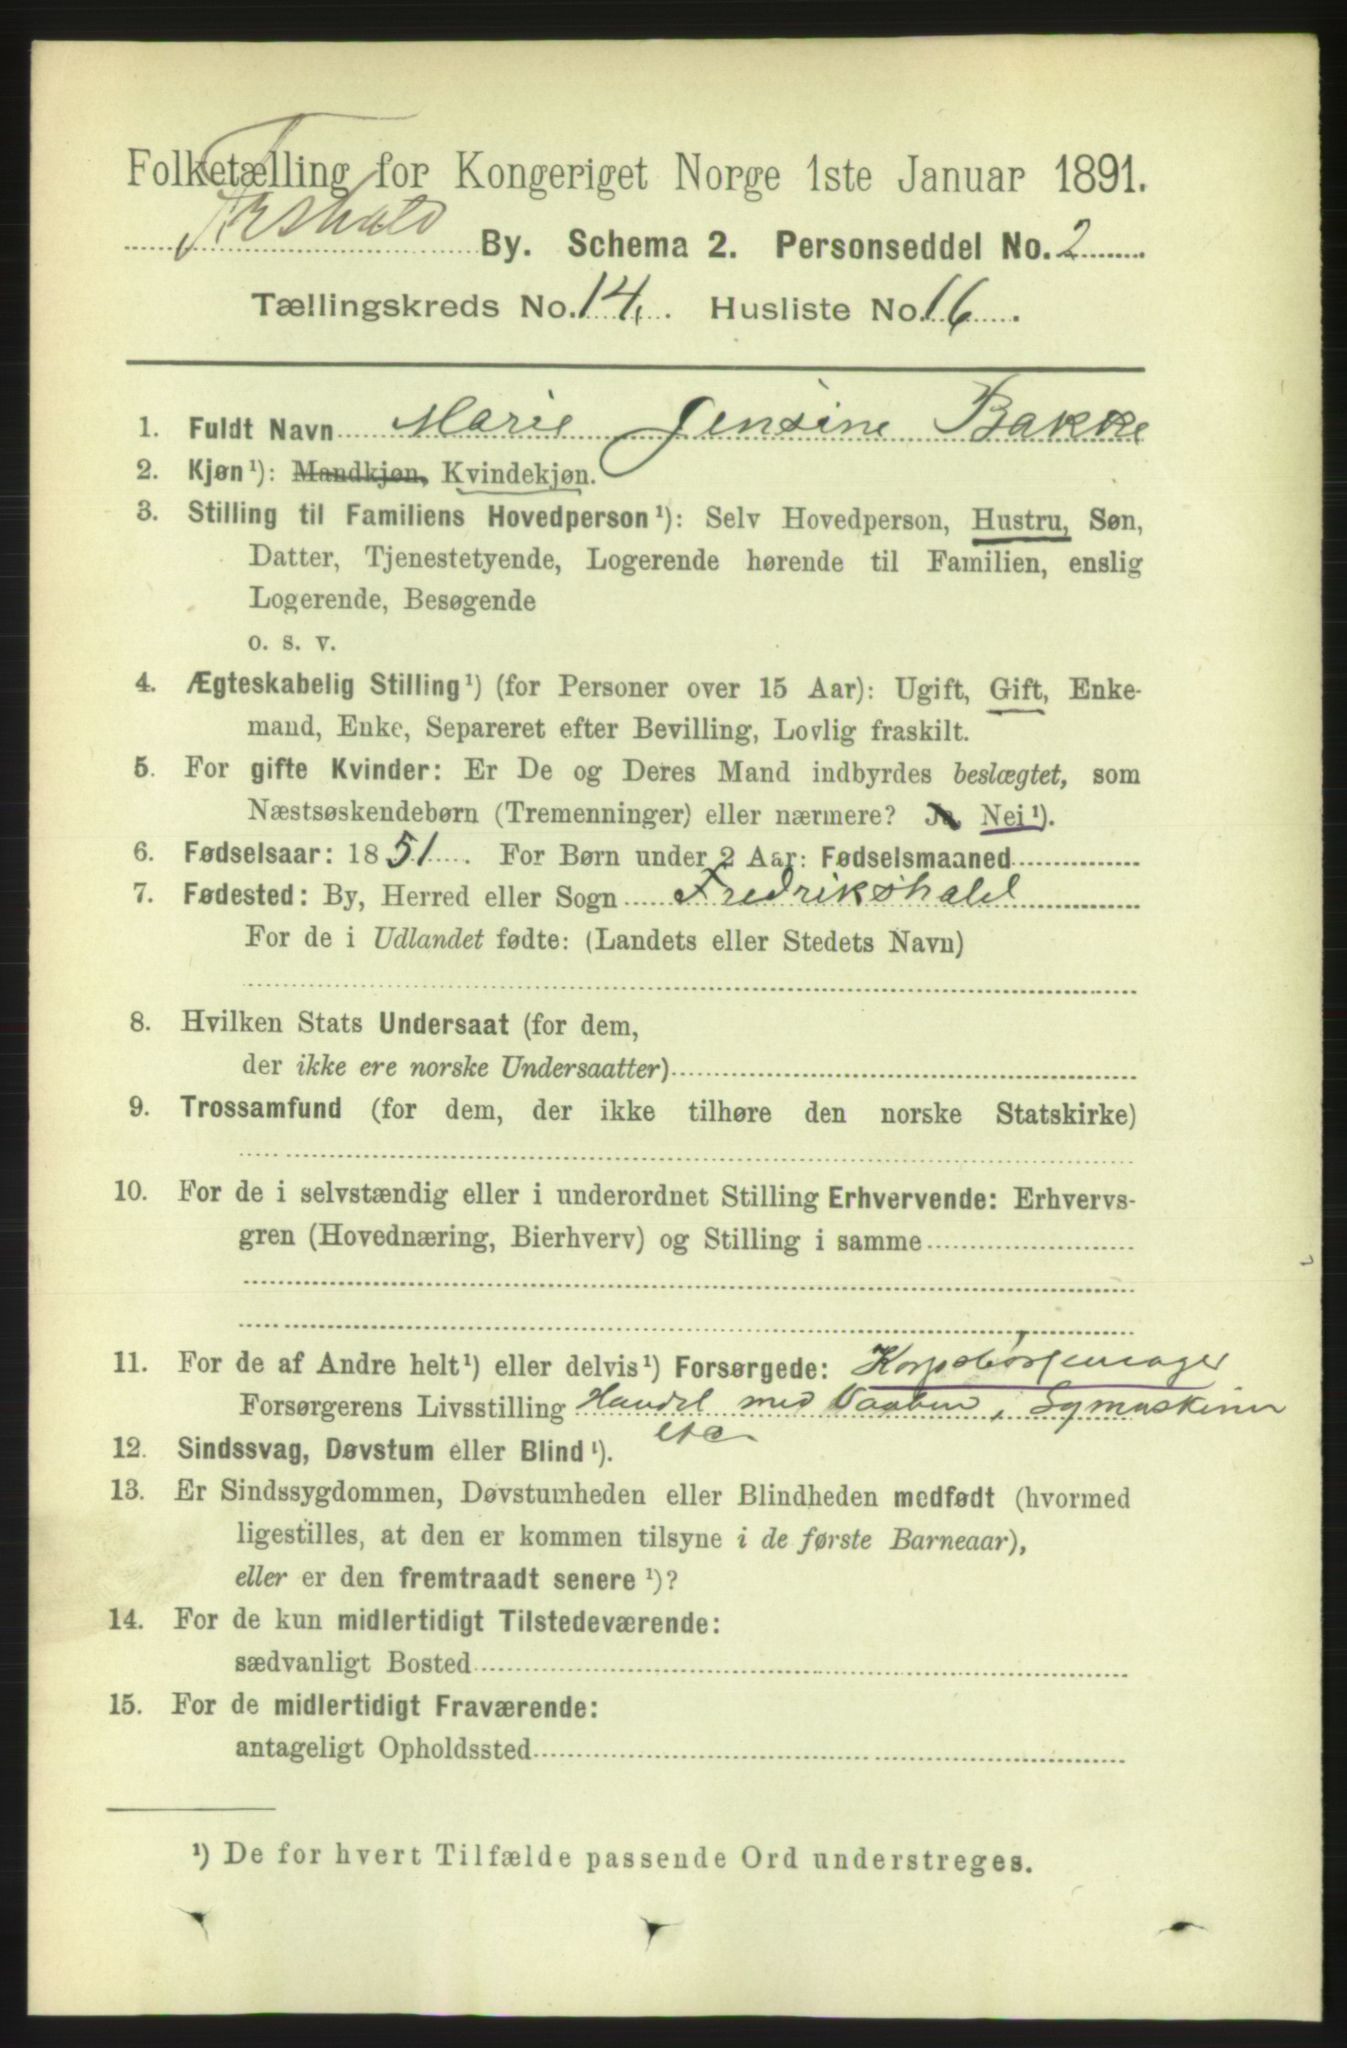 Folketælling for Kongeriget Norge 1ste Januar 1891.
Frshald By. Schema 2. Personseddel No. 2
Tællingskreds No. 14. Husliste No. 16
1. Fuldt Navn Marie Jensine Bakke
2. Kjøn¹): Mandkjøn, Kvindekjøn.
3. Stilling til Familiens Hovedperson¹): Selv Hovedperson, Hustru, Søn,
Datter, Tjenestetyende, Logerende hørende til Familien, enslig
Logerende, Besøgende
o. s. v.
4. Ægteskabelig Stilling¹) (for Personer over 15 Aar): Ugift, Gift, Enke-
mand, Enke, Separeret efter Bevilling, Lovlig fraskilt.
5. For gifte Kvinder: Er De og Deres Mand indbyrdes beslægtet, som
Næstsøskendebørn (Tremenninger) eller nærmere? Ja, Nei¹).
6. Fødselsaar: 1851. For Børn under 2 Aar: Fødselsmaaned
7. Fødested: By, Herred eller Sogn Fredrikshald
For de i Udlandet fødte: (Landets eller Stedets Navn)
8. Hvilken Stats Undersaat (for dem,
der ikke ere norske Undersaatter)
9. Trossamfund (for dem, der ikke tilhøre den norske Statskirke)
10. For de i selvstændig eller i underordnet Stilling Erhvervende: Erhvervs-
gren (Hovednæring, Bierhverv) og Stilling i samme
11. For de af Andre helt¹) eller delvis¹) Forsørgede: Korpsbørsemager
Forsørgerens Livsstilling Handel med Vaaben, Symaskiner
etc
12. Sindssvag, Døvstum eller Blind¹).
13. Er Sindssygdommen, Døvstumheden eller Blindheden medfødt (hvormed
ligestilles, at den er kommen tilsyne i de første Barneaar),
eller er den fremtraadt senere¹)?
14. For de kun midlertidigt Tilstedeværende:
sædvanligt Bosted
15. For de midlertidigt Fraværende:
antageligt Opholdssted
¹) De for hvert Tilfælde passende Ord understreges.